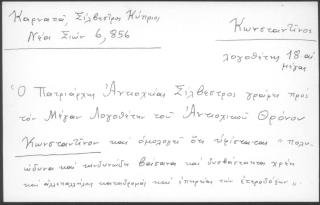 Καρνατά, Σίλβεστρος Κύπριος
Νέα Σιών 6, 856
Κωνσταντῖνος
λογοθέτης 18 αἰ
μέγας
Ὁ Πατριάρχης Ἀντιοχείας Σίλβεστρος γράφει πρὸς
τὸν Μέγαν Λογοθέτην τοῦ Ἀντιοχικοῦ Θρόνου
Κωνσταντῖνον καὶ ὁμολογεῖ ὅτι ὑφίσταται "πολυ-
ώδυνα καὶ βάσανα καὶ δυσβάστακτα χρέη
καὶ καταδρομὰς καὶ ἐπηρείας τῶν ἑτεροδόξων"